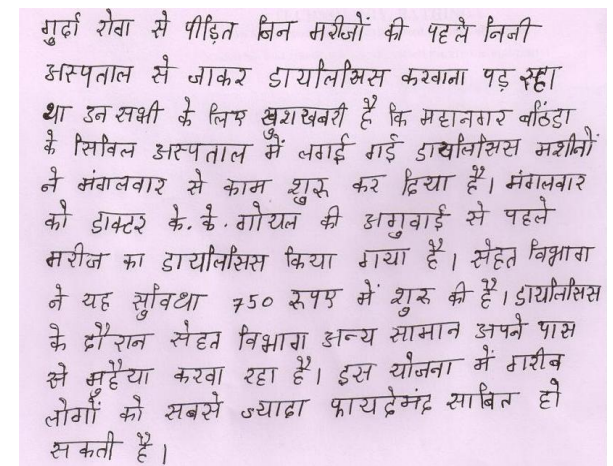 गुर्दा रोग से पीड़ित जिन मरीजों की पहले निजी
अस्पताल से जाकर डायलिसिस करवाना पड़ रहा
था उन सभी के लिए खुशखबरी है कि महानगर बठिंडा
के सिविल अस्पताल में लगाई गई डायलिसिस मशीनों
ने मंगलवार से काम शुरू कर दिया है। मंगलवार
को डाक्टर के. के. गोयल की अगुवाई से पहले
मरीज का डायलिसिस किया गया है। सेहत विभाग
ने यह सुविधा 750 रूपए में शुरू की है। डायलिसिस
के दौरान सेहत विभाग अन्य सामान अपने पास
से मुहैया करवा रहा है। इस योजना में गरीब
लोगों को सबसे ज्यादा फायदेमंद साबित हो
सकती है।